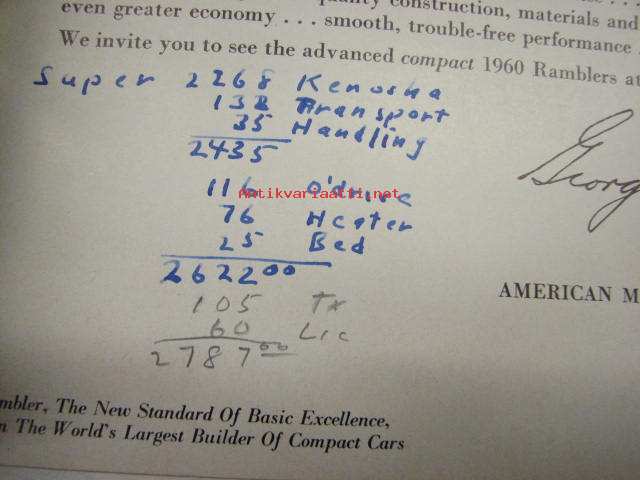 quality construction, materials and
even greater economy . . . smooth, trouble-free performance
We invite you to see the advanced compact 1960 Ramblers at
Super 2268 Kenosha
132 Transport
35 Handling
2435
116 O'drive
Antikvariaatti.net
76 Heater
25 Bed
2622 00
105 Tx
60 Lic
2787 00
Georg
AMERICAN M
mbler, The New Standard Of Basic Excellence,
m The World's Largest Builder Of Compact Cars